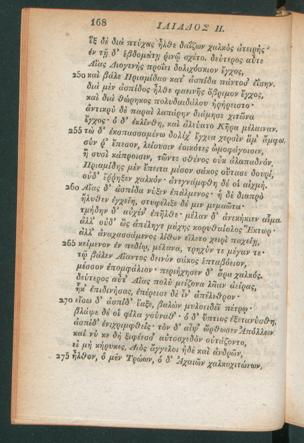 168 ΙΛΙΑΔΟΣ Η.
ἓξ δὲ διὰ πτύχας ἦλθε δαΐζων χαλκὸς ἀτειρής·
ἐν τῇ δ' ἑβδομάτῃ ῥινῷ σχέτο. δεύτερος αὖτε
Αἴας Διογενὴς προΐει δολιχόσκιον ἔγχος,
250 καὶ βάλε Πριαμίδαο κατ' ἀσπίδα πάντοσ' ἐΐσην.
διὰ μὲν ἀσπίδος ἦλθε φαεινῆς ὄβριμον ἔγχος,
καὶ διὰ θώρηκος πολυδαιδάλου ἠρήρειστο·
ἀντικρὺ δὲ παραὶ λαπάρην διάμησε χιτῶνα
ἔγχος· ὁ δ' ἐκλίνθη, καὶ ἀλεύατο Κῆρα μέλαιναν.
255 τὼ δ' ἐκσπασσαμένω δολίχ' ἔγχεα χερσὶν ἅμ' ἄμφω,
σύν ῥ' ἔπεσον, λείουσιν ἐοικότες ὠμοφάγοισιν,
ἢ συσὶ κάπροισιν, τῶντε σθένος οὐκ ἀλαπαδνόν.
Πριαμίδης μὲν ἔπειτα μέσον σάκος οὔτασε δουρί,
οὐδ' ἔρρηξεν χαλκόν· ἀνεγνάμφθη δέ οἱ αἰχμή.
260 Αἴας δ' ἀσπίδα νύξεν ἐπάλμενος· ἡ δὲ διαπρὸ
ἤλυθεν ἐγχείη, στυφέλιξε δέ μιν μεμαῶτα·
τμήδην δ' αὐχέν' ἐπῆλθε· μέλαν δ' ἀνεκήκιεν αἷμα.
ἀλλ' οὐδ' ὣς ἀπέληγε μάχης κορυθαίολος Ἕκτωρ·
ἀλλ' ἀναχασσάμενος λίθον εἵλετο χειρὶ παχείῃ,
265 κείμενον ἐν πεδίῳ, μέλανα, τρηχύν τε μέγαν τε·
τῷ βάλεν Αἴαντος δεινὸν σάκος ἑπταβόειον,
μέσσον ἐπομφάλιον· περιήχησεν δ' ἄρα χαλκός.
δεύτερος αὖτ' Αἴας πολὺ μείζονα λᾶαν ἀείρας,
ἧκ' ἐπιδινήσας, ἐπέρεισε δὲ ἶν' ἀπέλεθρον·
270 εἴσω δ' ἀσπίδ' ἔαξε, βαλὼν μυλοειδέϊ πέτρῳ·
βλάψε δέ οἱ φίλα γούναθ'· ὁ δ' ὕπτιος ἐξετανύσθη,
ἀσπίδ' ἐνιχριμφθείς· τὸν δ' αἶψ' ὤρθωσεν Ἀπόλλων.
καί νύ κε δὴ ξιφέεσσ' αὐτοσχεδὸν οὐτάζοντο,
εἰ μὴ κήρυκες, Διὸς ἄγγελοι ἠδὲ καὶ ἀνδρῶν,
275 ἦλθον, ὁ μὲν Τρώων, ὁ δ' Ἀχαιῶν χαλκοχιτώνων,